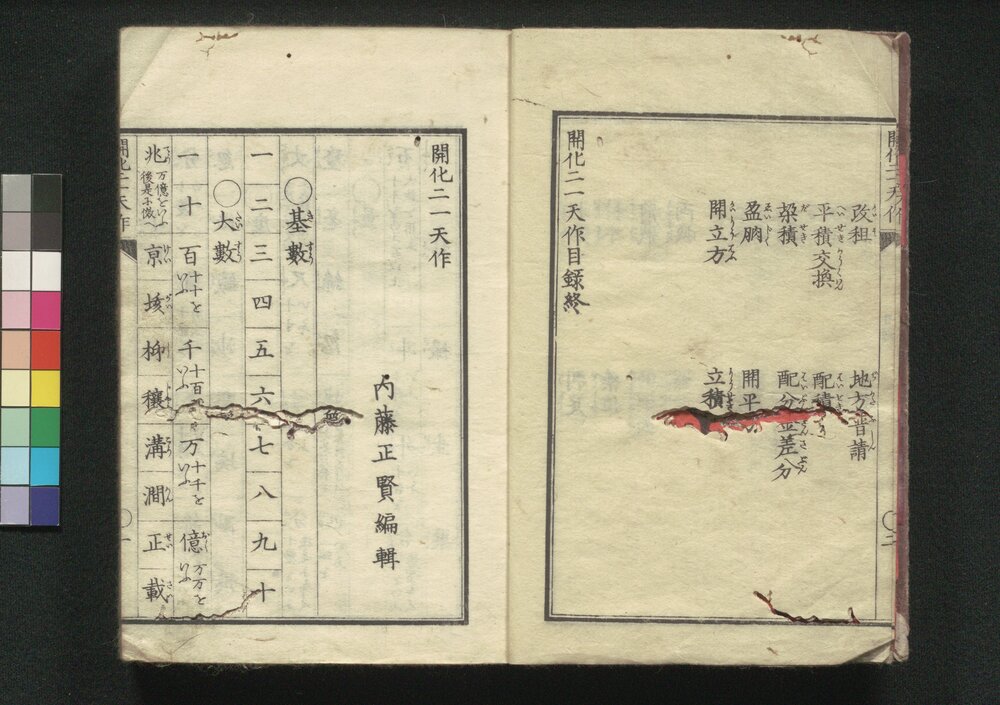 開化二一天作
改租
平積交換
梁積
盈朒
開立方
地方普請
配積
配分並差分
開平
立積
開化二一天作目録終
開化二一天作
内藤正賢編輯
○基數
一 二 三 四 五 六 七 八 九 十
○大數
一 十 百十十を いふ 千十百を いふ 万十千を いふ 億万万を いふ
兆万億をいふ 後是に倣へ 京 垓 秭 穰 溝 澗 正 載
開化二一天作